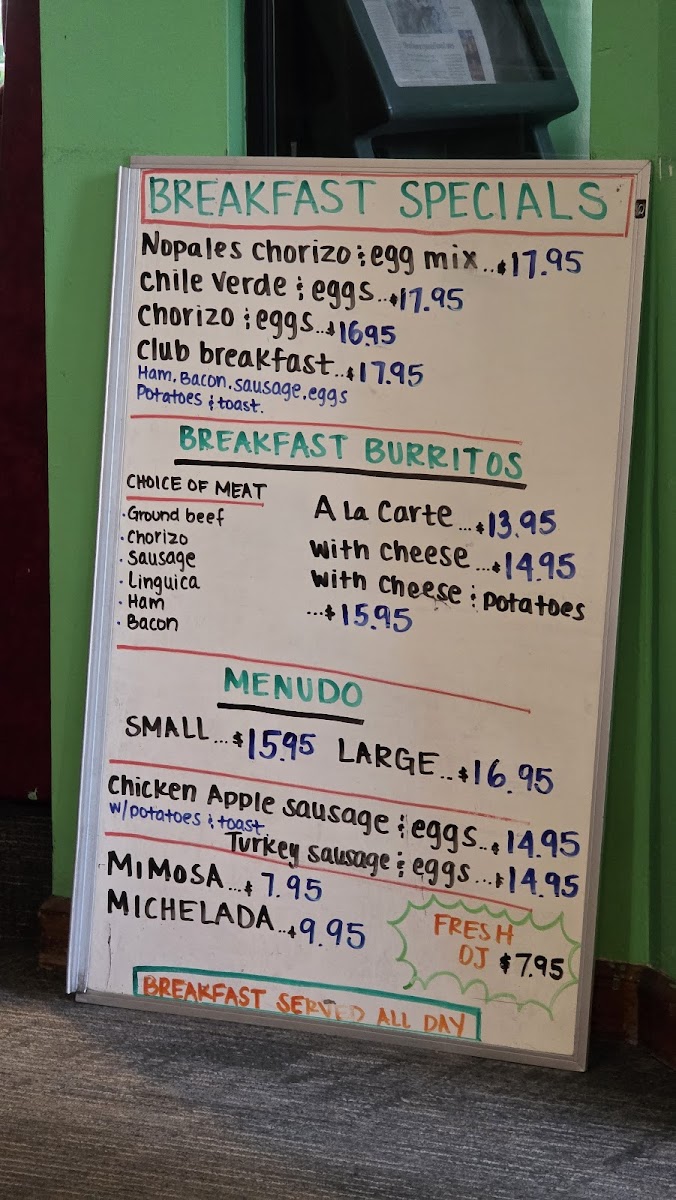 BREAKFAST SPECIALS
Nopales chorizo & egg mix...$17.95
chile verde & eggs...$17.95
chorizo & eggs...$16.95
club breakfast...$17.95
Ham, Bacon, sausage, eggs
Potatoes & toast.
BREAKFAST BURRITOS
CHOICE OF MEAT
· Ground beef
· Chorizo
· Sausage
· Linguica
· Ham
· Bacon
A La Carte...$13.95
with cheese...$14.95
with cheese & potatoes
...$15.95
MENUDO
SMALL...$15.95 LARGE...$16.95
Chicken Apple sausage & eggs...$14.95
w/potatoes & toast
Turkey sausage & eggs...$14.95
MiMoSA...$7.95
MICHELADA...$9.95
FRESH
OJ $7.95
BREAKFAST SERVED ALL DAY